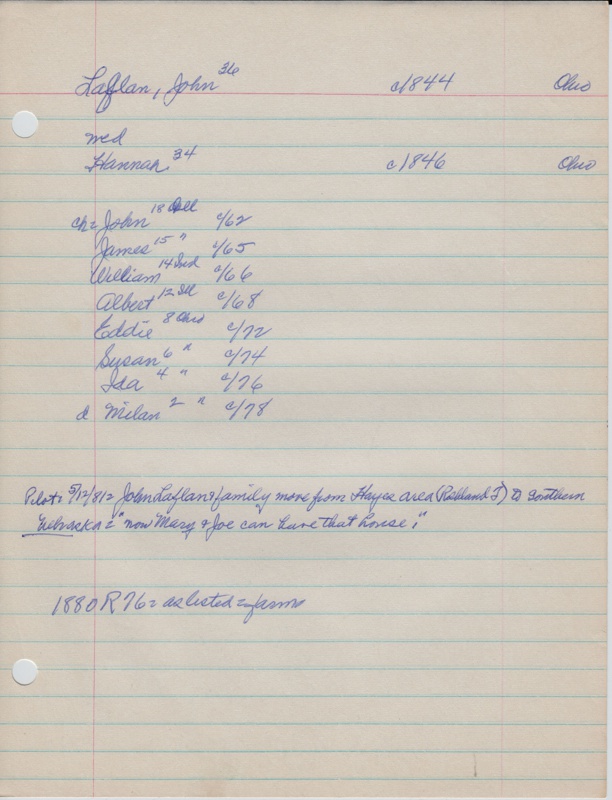 Laflan, John 36 c/1844 Ohio
med
Hannah 34 c/1846 Ohio
ch= John 18 Ill c/62
James 15 " c/65
William 14 Ind c/66
Albert 12 Ill c/68
Eddie 8 Ohio c/72
Susan 6 " c/74
Ida 4 " c/76
d Milan 2 " c/78
Pilot: 5/12/81= John Laflan & family move from Hayes area (Richland T) to southern
Nebraska = "now Mary & Joe can have that house!"
1880 R 76= as listed = farms